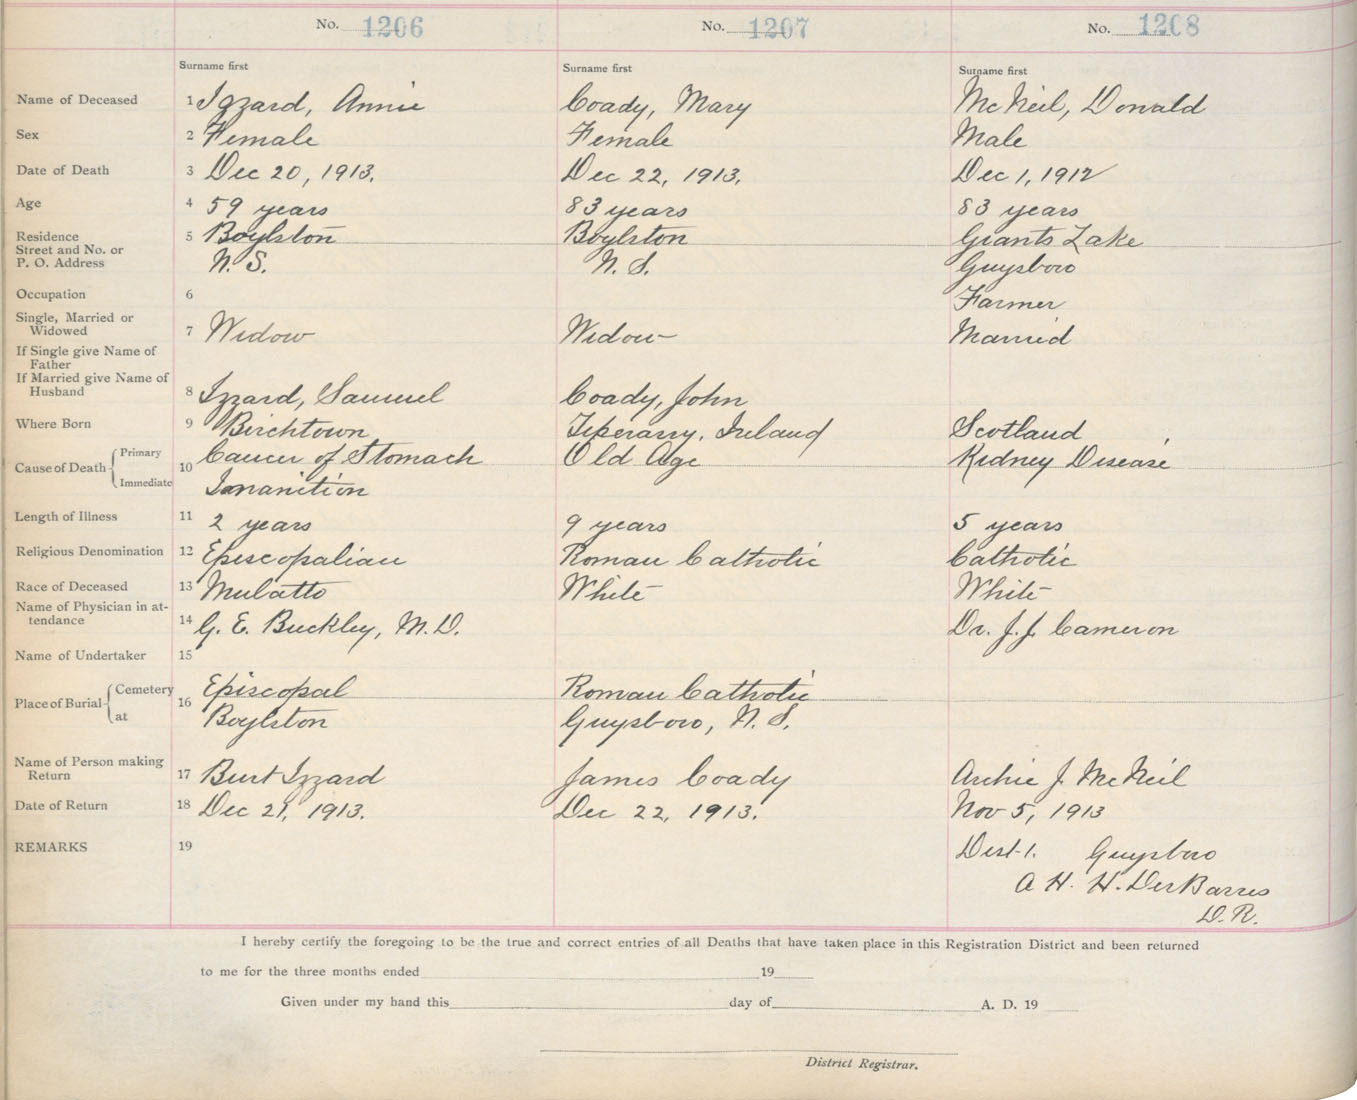 No. 1206 No. 1207 No. 1208
Surname first Surname first Surname first
Name of Deceased 1 Izzard, Annie Coady, Mary McNeil, Donald
Sex 2 Female Female Male
Date of Death 3 Dec 20, 1913. Dec 22, 1913. Dec 1, 1912
Age 4 59 years 83 years 83 years
Residence 5 Boylston Boylston Giants Lake
Street and No. or
P. O. Address N. S. N. S. Guysboro
Occupation 6 Farmer
Single, Married or
Widowed 7 Widow Widow Married
If Single give Name of
Father
If Married give Name of
Husband 8 Izzard, Samuel Coady, John
Where Born 9 Birchtown Tiperarry, Ireland Scotland
Cause of Death Primary 10 Cancer of Stomach Old Age Kidney Disease
Immediate Inanition
Length of Illness 11 2 years 9 years 5 years
Religious Denomination 12 Episcopalian Roman Catholic Catholic
Race of Deceased 13 Mulatto White White
Name of Physician in at-
tendance 14 G. E. Buckley, M.D. Dr. J. J. Cameron
Name of Undertaker 15
Place of Burial Cemetery 16 Episcopal Roman Catholic
at Boylston Guysboro, N. S.
Name of Person making
Return 17 Burt Izzard James Coady Archie J McNeil
Date of Return 18 Dec 21, 1913. Dec 22, 1913. Nov 5, 1913
REMARKS 19 Dist 1. Guysboro
A H. H. DesBarres
D.R.
I hereby certify the foregoing to be the true and correct entries of all Deaths that have taken place in this Registration District and been returned
to me for the three months ended 19
Given under my hand this day of A. D. 19
District Registrar.